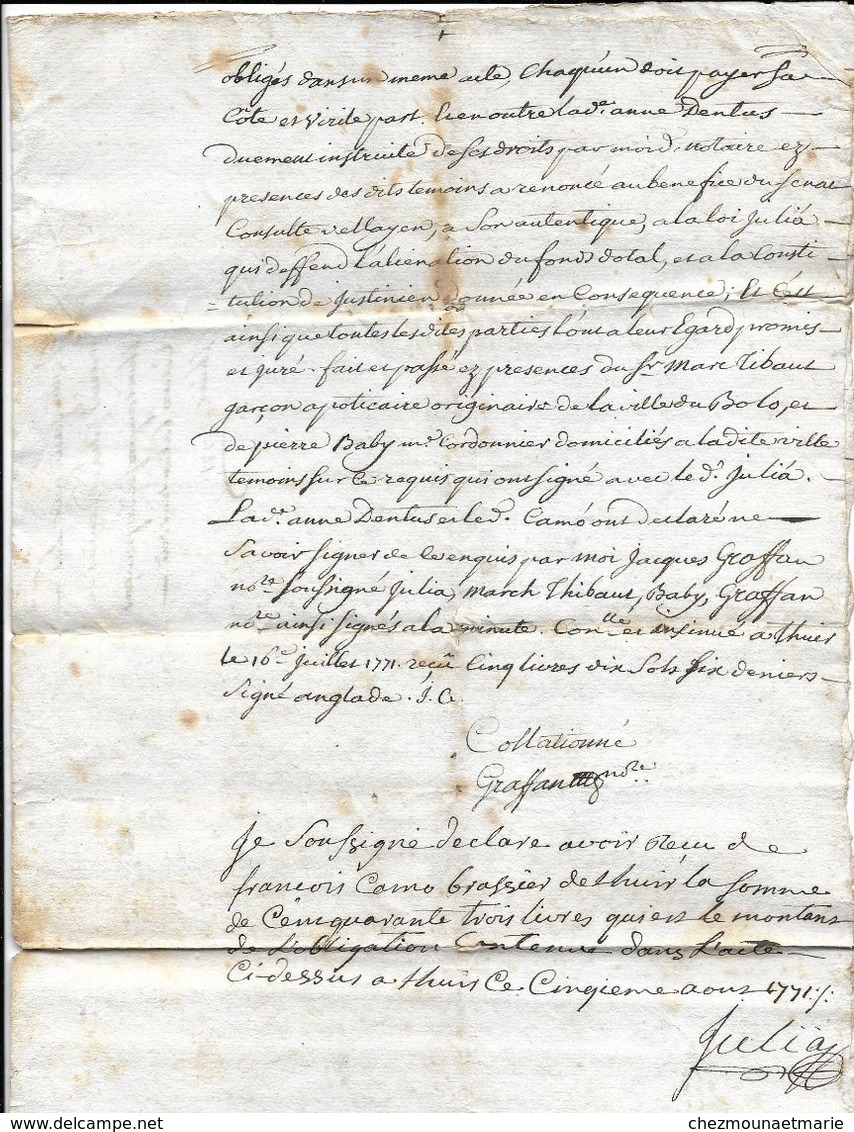 obligés dans un meme acte, Chaquûn doit payer sa
Côte et virile part. Et en outre lad.e anne Dentus
duement instruite de ses droits par moi d. notaire ez
presences des dits temoins a renoncé au benefice du senat
Consulte vellayen, a son autentique, a la loi Julia
qui deffend l'alienation du fond dotal, et a la Consti
-tution de justinien donnée en Consequence; Et C'est
ainsi que toutes lesdites parties l'ont a leur Egard promis
et juré. fait et passé ez presences du Sr. Marc Tibaut
garçon apoticaire originaire de la ville du Bolo, et
de pierre Baby m.e Cordonnier domiciliés a ladite ville
temoins sur ce requis qui ont signé avec le d. Juliá.
Lad.e anne Dentus et led. Camó ont declaré ne
savoir signer de ce enquis par moi Jacques Graffan
no.re soussigné Julia, March Thibaut, Baby, Graffan
no.re ainsi signés a la minute. Con.lle et insinué a thuir
le 16.e Juillet 1771. reçu Cinq livres dix sols six deniers
signé anglade. J. C.
Collationné
Graffan no.re
Je soussigné declare avoir recu de
francois Camo brassier de thuir la somme
de Cent quarante trois livres qui est le montant
de L'obligation Contenue dans L'acte
Ci-dessus a thuir Ce Cinqieme aout 1771 ./.
Julia
chezmounaetmarie